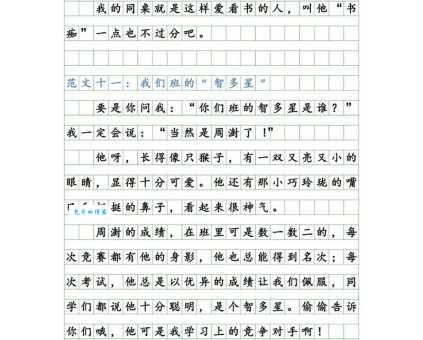 我的同桌就是这样爱看书的人，叫他“书
痴”一点也不过分吧。
范文十一：我们班的“智多星”
要是你问我：“你们班的智多星是谁？”
我一定会说：“当然是周澍了！”
他呀，长得像只猴子，有一双又亮又小的
眼睛，显得十分可爱。他还有那小巧玲珑的嘴
挺的鼻子，看起来很神气。
周澍的成绩，在班里可是数一数二的，每
次竞赛都有他的身影，他也总能得到名次；每
次考试，他总是以优异的成绩让我们佩服，同
学们都说他十分聪明，是个智多星。偷偷告诉
你们哦，他可是我学习上的竞争对手啊！